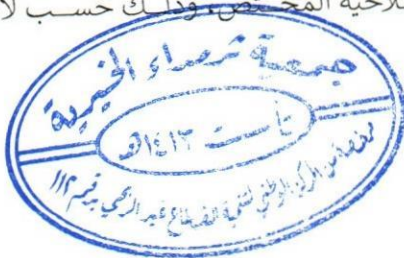 لاحية المختص، وذلك حسب لا
جمعية ثرمداء الخيرية
تأسست ١٤١٣هـ
المركز الوطني لتنمية القطاع غير الربحي برقم ١١٢